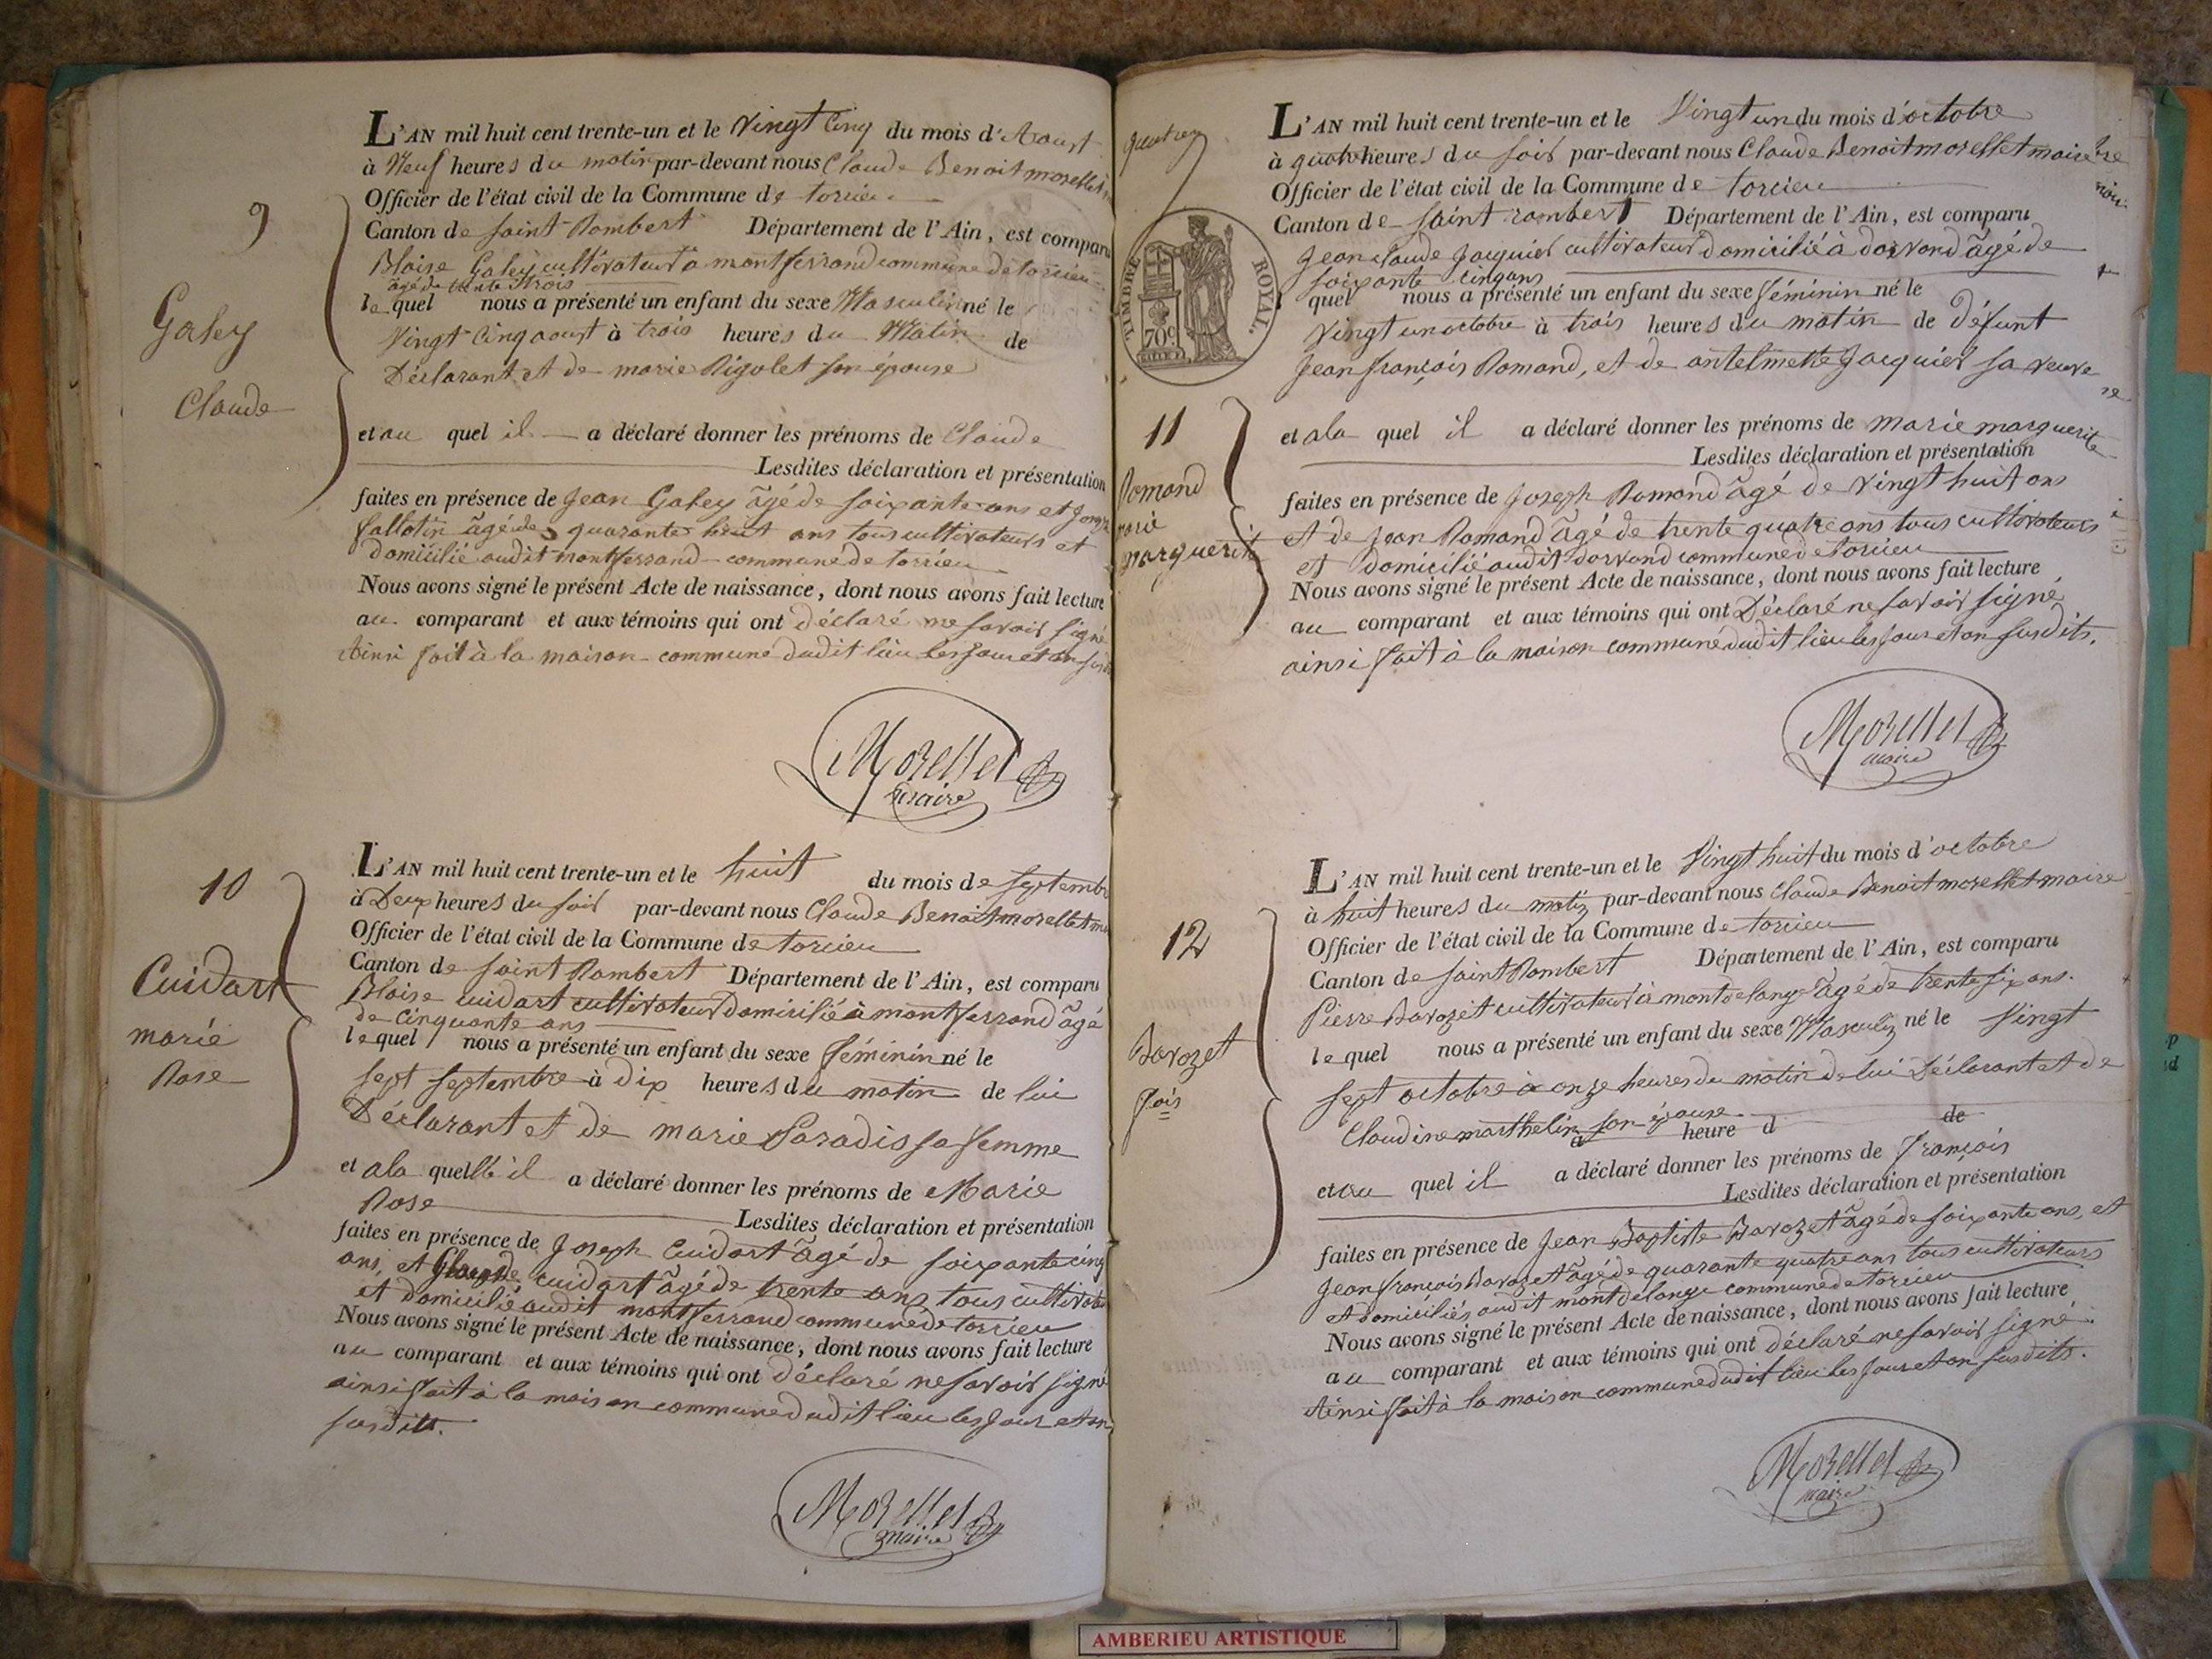 9
Galey
Claude
L'AN mil huit cent trente-un et le Vingt Cinq du mois d'Aoust
à Neuf heures du matin par-devant nous Claude Benoit morellet
Officier de l'état civil de la Commune de torcieu
Canton de Saint Rambert Département de l'Ain, est comparu
Blaise Galey cultivateur à montferrand commune de torcieu
âgé de trente trois
lequel nous a présenté un enfant du sexe Masculin né le
Vingt Cinq aoust à trois heures du Matin de
Déclarant et de marie Rigolet son épouse
et au quel il a déclaré donner les prénoms de Claude
Lesdites déclaration et présentation
faites en présence de Jean Galey âgé de soixante ans et
âgé de quarante huit ans tous cultivateurs et
domicilié audit montferrand commune de torcieu
Nous avons signé le présent Acte de naissance, dont nous avons fait lecture
au comparant et aux témoins qui ont déclaré ne savoir signé
Ainsi fait à la maison commune dudit lieu les jour et an
Morellet
maire
10
Cuidart
marie
Rose
L'AN mil huit cent trente-un et le huit du mois de Septembre
à Deux heures du soir par-devant nous Claude Benoit morellet
Officier de l'état civil de la Commune de torcieu
Canton de Saint Rambert Département de l'Ain, est comparu
Blaise cuidart cultivateur domicilié à montferrand âgé
de cinquante ans
lequel nous a présenté un enfant du sexe féminin né le
sept septembre à dix heures du matin de lui
Déclarant et de marie Paradis sa femme
et a la quelle il a déclaré donner les prénoms de Marie
Rose
Lesdites déclaration et présentation
faites en présence de Joseph Cuidart âgé de soixante cinq
ans, et Claude cuidart âgé de trente ans tous
et domicilié audit montferrand commune de torcieu
Nous avons signé le présent Acte de naissance, dont nous avons fait lecture
au comparant et aux témoins qui ont déclaré ne savoir signé
ainsi fait à la maison commune dudit lieu les jour et an
susdits.
Morellet
maire
TIMBRE ROYAL.
70c
11
Romand
marie
marguerite
L'AN mil huit cent trente-un et le Vingt un du mois d'octobre
à quatre heures du soir par-devant nous Claude Benoit morellet maire
Officier de l'état civil de la Commune de torcieu
Canton de Saint rambert Département de l'Ain, est comparu
Jean claude Jacquier cultivateur domicilié à dorvand âgé de
soixante cinq ans
quel nous a présenté un enfant du sexe féminin né le
vingt un octobre à trois heures du matin de défunt
Jean françois Romand, et de antelmette Jacquier sa veuve
et a la quel il a déclaré donner les prénoms de marie marguerite
Lesdites déclaration et présentation
faites en présence de Joseph Romand âgé de vingt huit ans
et de Jean Romand âgé de trente quatre ans tous cultivateurs
et domicilié audit dorvand commune de torcieu
Nous avons signé le présent Acte de naissance, dont nous avons fait lecture
au comparant et aux témoins qui ont Déclaré ne savoir signé
ainsi fait à la maison commune dudit lieu les jour et an susdits.
Morellet
maire
12
Davozet
fois
L'AN mil huit cent trente-un et le Vingt huit du mois d'octobre
à huit heures du matin par-devant nous Claude Benoit morellet maire
Officier de l'état civil de la Commune de torcieu
Canton de Saint Rambert Département de l'Ain, est comparu
Pierre Davozet cultivateur à montdelange âgé de trente six ans.
lequel nous a présenté un enfant du sexe Masculin né le Vingt
sept octobre à onze heures du matin de lui Déclarant et de
Claudine marthelin son épouse
à heure d de
et au quel il a déclaré donner les prénoms de françois
Lesdites déclaration et présentation
faites en présence de Jean Baptiste Davozet âgé de soixante ans, et
Jean françois Davozet âgé de quarante quatre ans tous cultivateurs
et domiciliés audit montdelange commune de torcieu
Nous avons signé le présent Acte de naissance, dont nous avons fait lecture
au comparant et aux témoins qui ont déclaré ne savoir signé
Ainsi fait à la maison commune dudit lieu les jour et an susdits.
Morellet
maire
AMBERIEU ARTISTIQUE